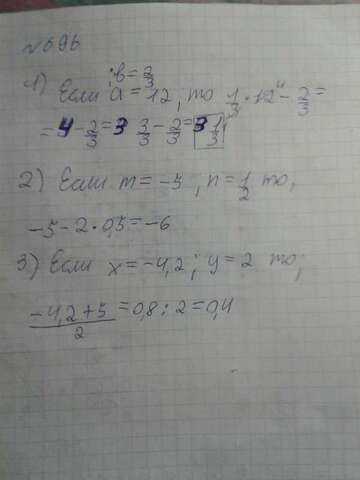 №696
; b = 2/3
1) Если a = 12, то 1/3 · 12⁴ - 2/3 =
= 4 - 2/3 = 3 3/3 - 2/3 = 3 1/3
2) Если m = -5, n = 1/2 то,
-5 - 2 · 0,5 = -6
3) Если x = -4,2; y = 2 то;
(-4,2 + 5)/2 = 0,8 : 2 = 0,4